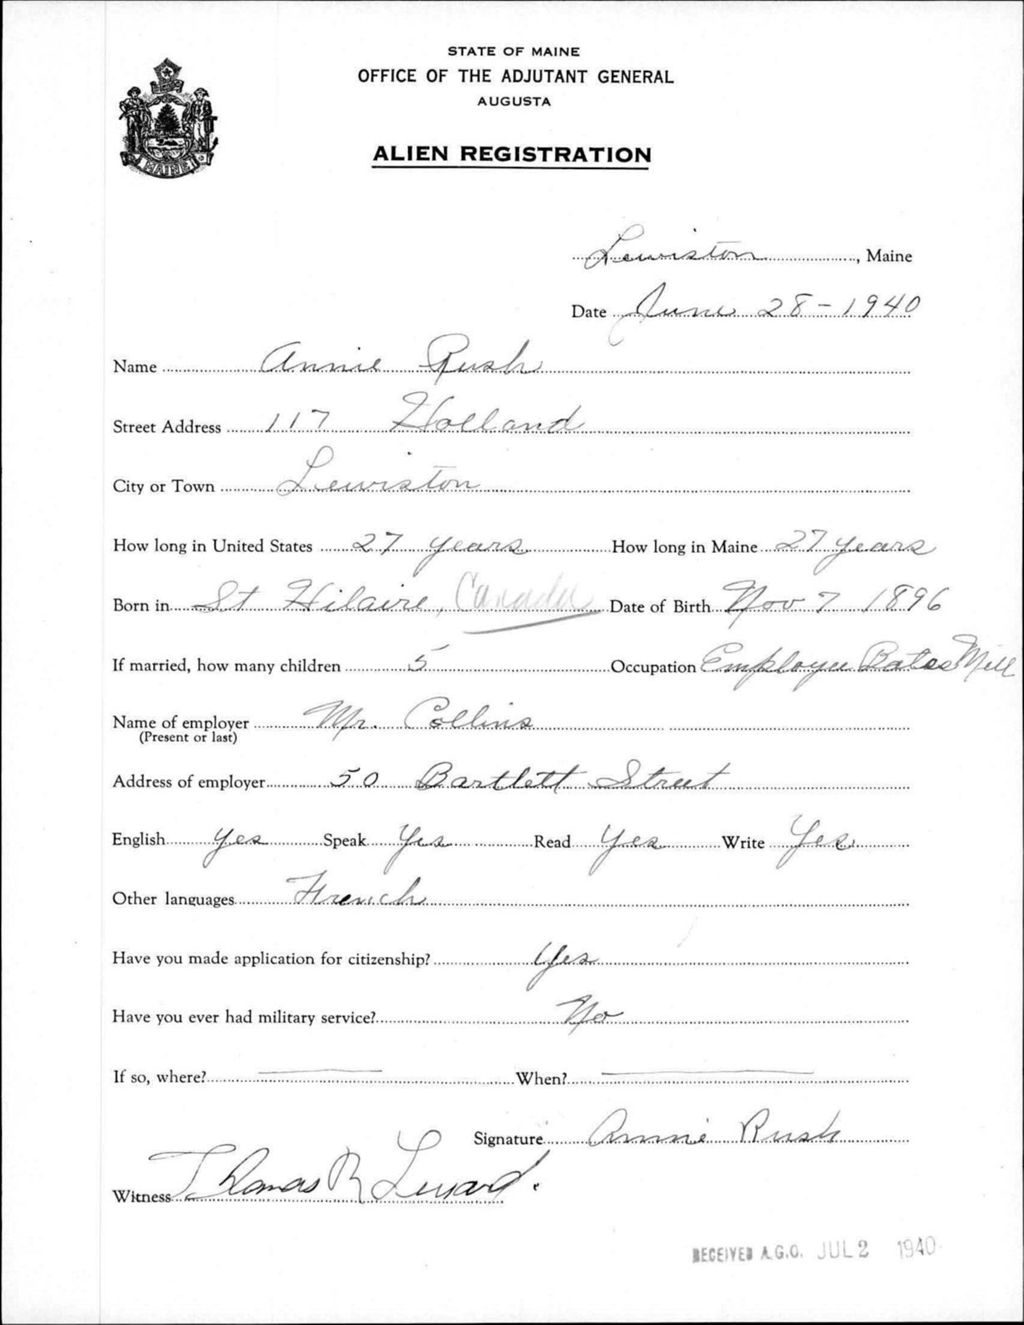 STATE OF MAINE
OFFICE OF THE ADJUTANT GENERAL
AUGUSTA
ALIEN REGISTRATION
MAINE
Lewiston, Maine
Date June 28 - 1940
Name Annie Rush
Street Address 117 Holland
City or Town Lewiston
How long in United States 27 years How long in Maine 27 years
Born in St Hilaire, Canada Date of Birth Nov 7 1896
If married, how many children 5 Occupation Employee Bates Mill
Name of employer Mr. Collins
(Present or last)
Address of employer 50 Bartlett Street
English Yes Speak Yes Read Yes Write Yes
Other languages French
Have you made application for citizenship? Yes
Have you ever had military service? No
If so, where? When?
Signature Annie Rush
Witness Thomas R
RECEIVED A.G.O. JUL 2 1940